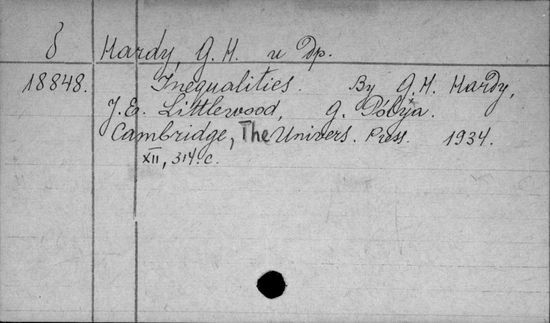 δ Hardy, G. H. и др.
18848. Inequalities. By G. H. Hardy,
J. E. Littlewood, G. Pólya.
Cambridge, The Univers. Press. 1934.
XII, 314 c.